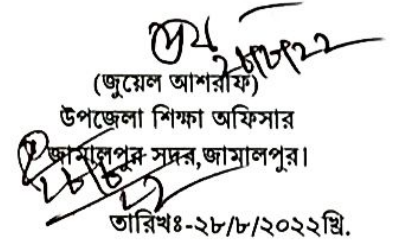 ২৮/৮/২২
(জুয়েল আশরাফ)
উপজেলা শিক্ষা অফিসার
জামালপুর সদর,জামালপুর।
২৮/৮/২২
তারিখঃ-২৮/৮/২০২২খ্রি.